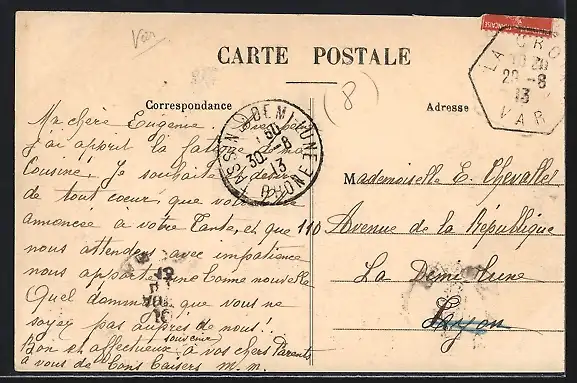 Var
CARTE POSTALE
(8)
Correspondance
Adresse
LA CRO
20
29-8
13
VAR
TASSIN DEMI-LUNE
30-8
13
RHONE
Ma chère Eugénie.
j'ai appris la
Cousine. Je souhaite
de tout cœur que
annoncée à votre Tante, et que
nous attendons avec impatience
nous apporte une bonne nouvelle
Quel dommage que vous ne
soyez pas auprès de nous!
Bon et affectueux souvenir à vos chers Parents
à vous de bons baisers m. m.
Mademoiselle E. Chevallet
110 Avenue de la République
La Demi-Lune
Lyon